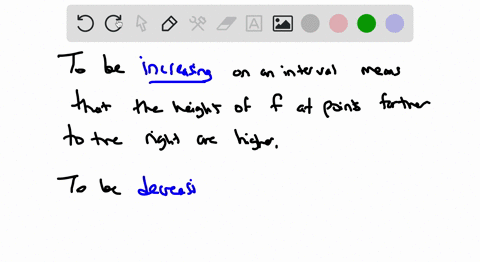 To be increasing on an interval means
that the height of f at points farther
to the right are higher.
To be decreasi